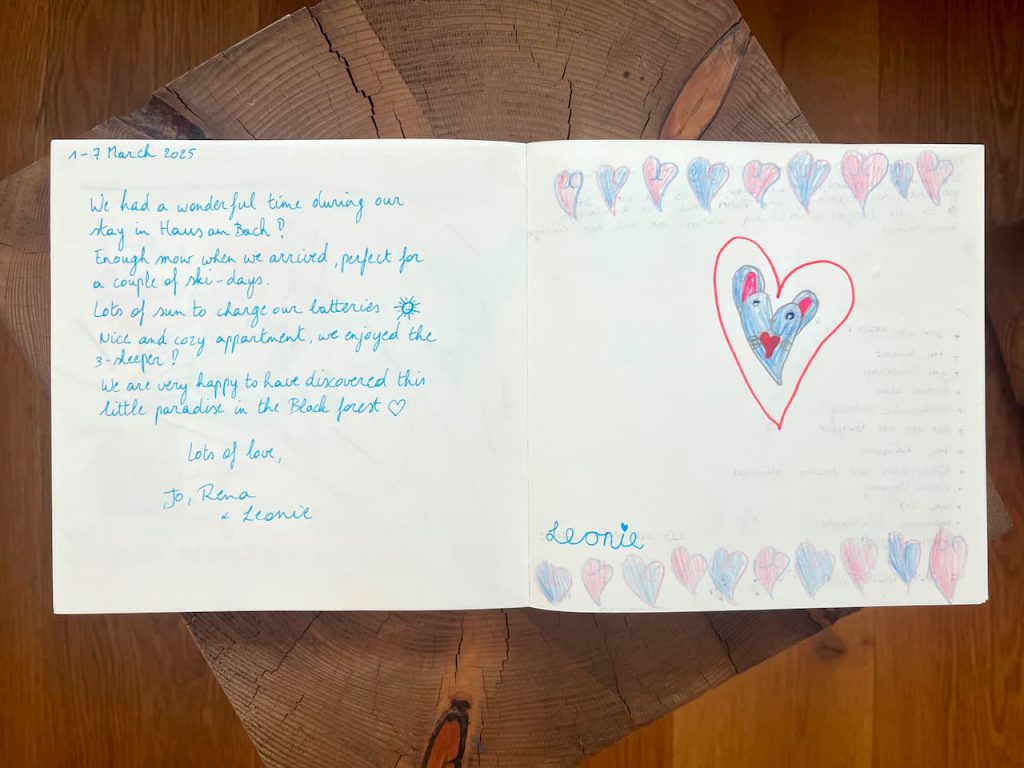 1-7 March 2025
We had a wonderful time during our
stay in Haus am Bach!
Enough snow when we arrived, perfect for
a couple of ski-days.
Lots of sun to charge our batteries
Nice and cozy appartment, we enjoyed the
3-sleeper!
We are very happy to have discovered this
little paradise in the Black forest ♡
Lots of love,
Jo, Rena
& Leonie
Leonie